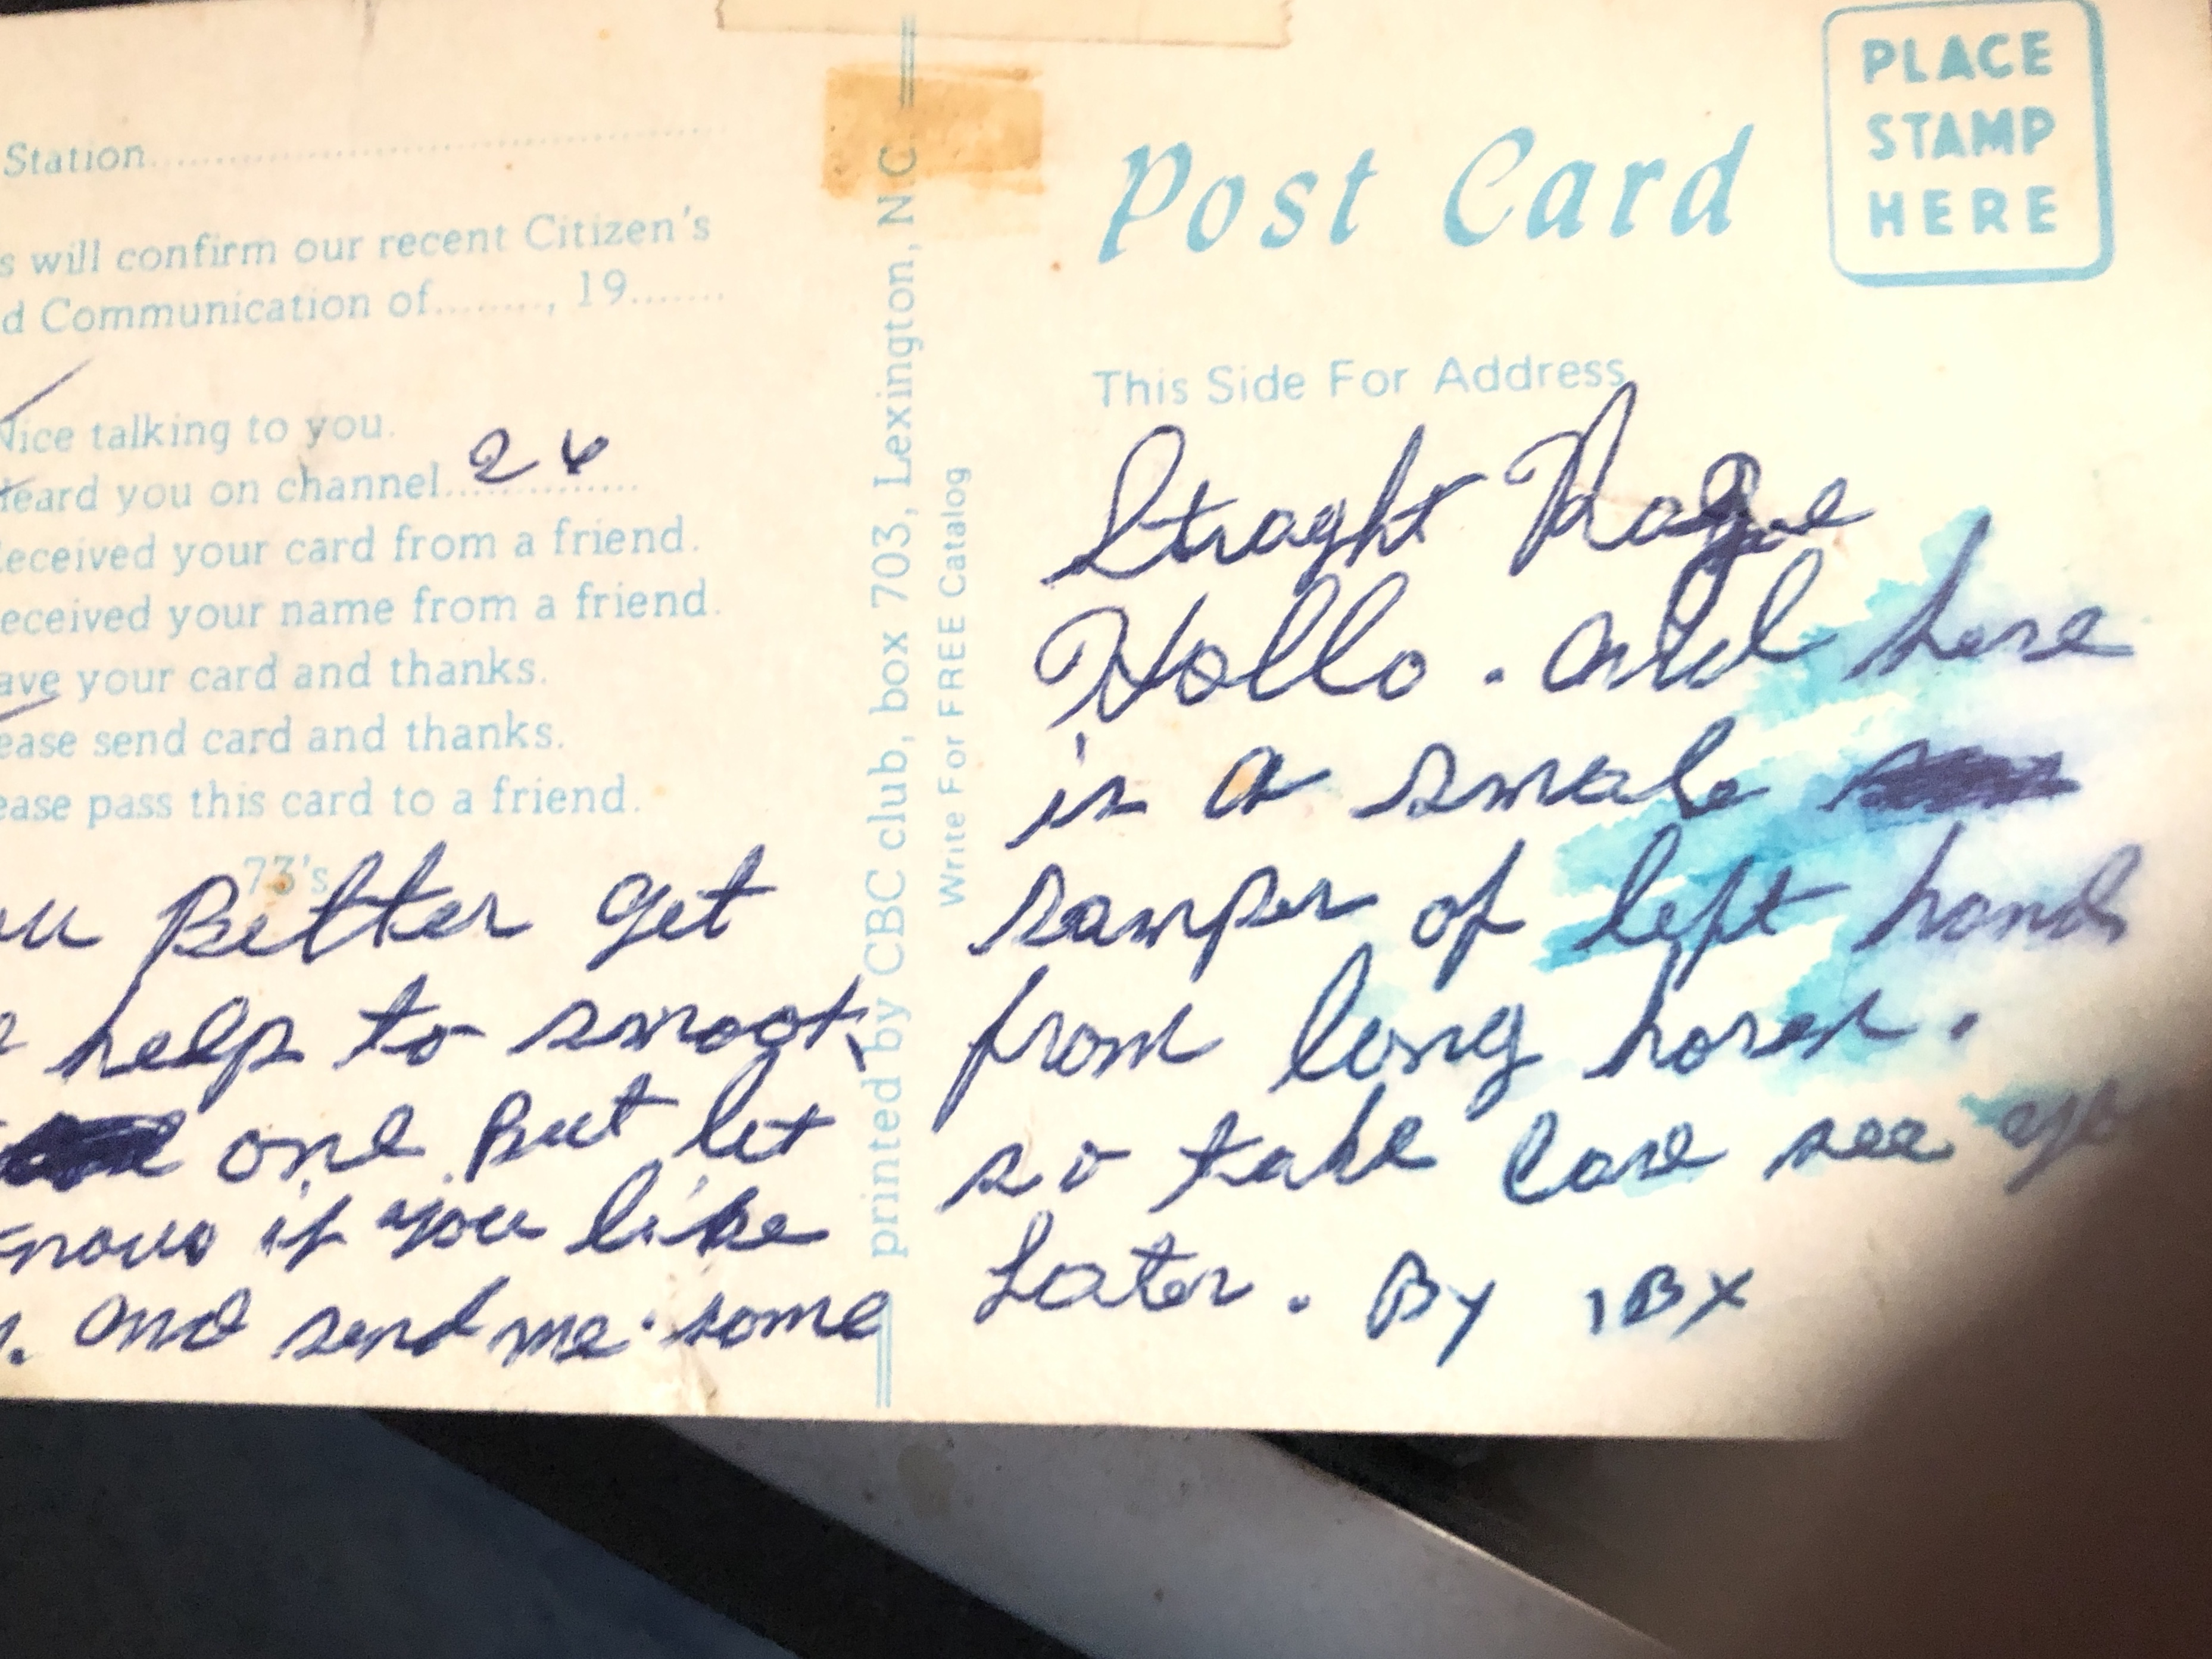 Station
s will confirm our recent Citizen's
d Communication of........, 19.......
Nice talking to you.
Heard you on channel 26
eceived your card from a friend.
eceived your name from a friend.
ave your card and thanks.
ease send card and thanks.
ease pass this card to a friend.
73's
ou Better get
help to smoot
one But let
know if you like
. and send me some
printed by CBC club, box 703, Lexington, N.C.
Write For FREE Catalog
Post Card
PLACE
STAMP
HERE
This Side For Address
Straght
Hollo. and here
is a smale
samper of left hand
from long horen.
so take care see you
Later. By 1BX